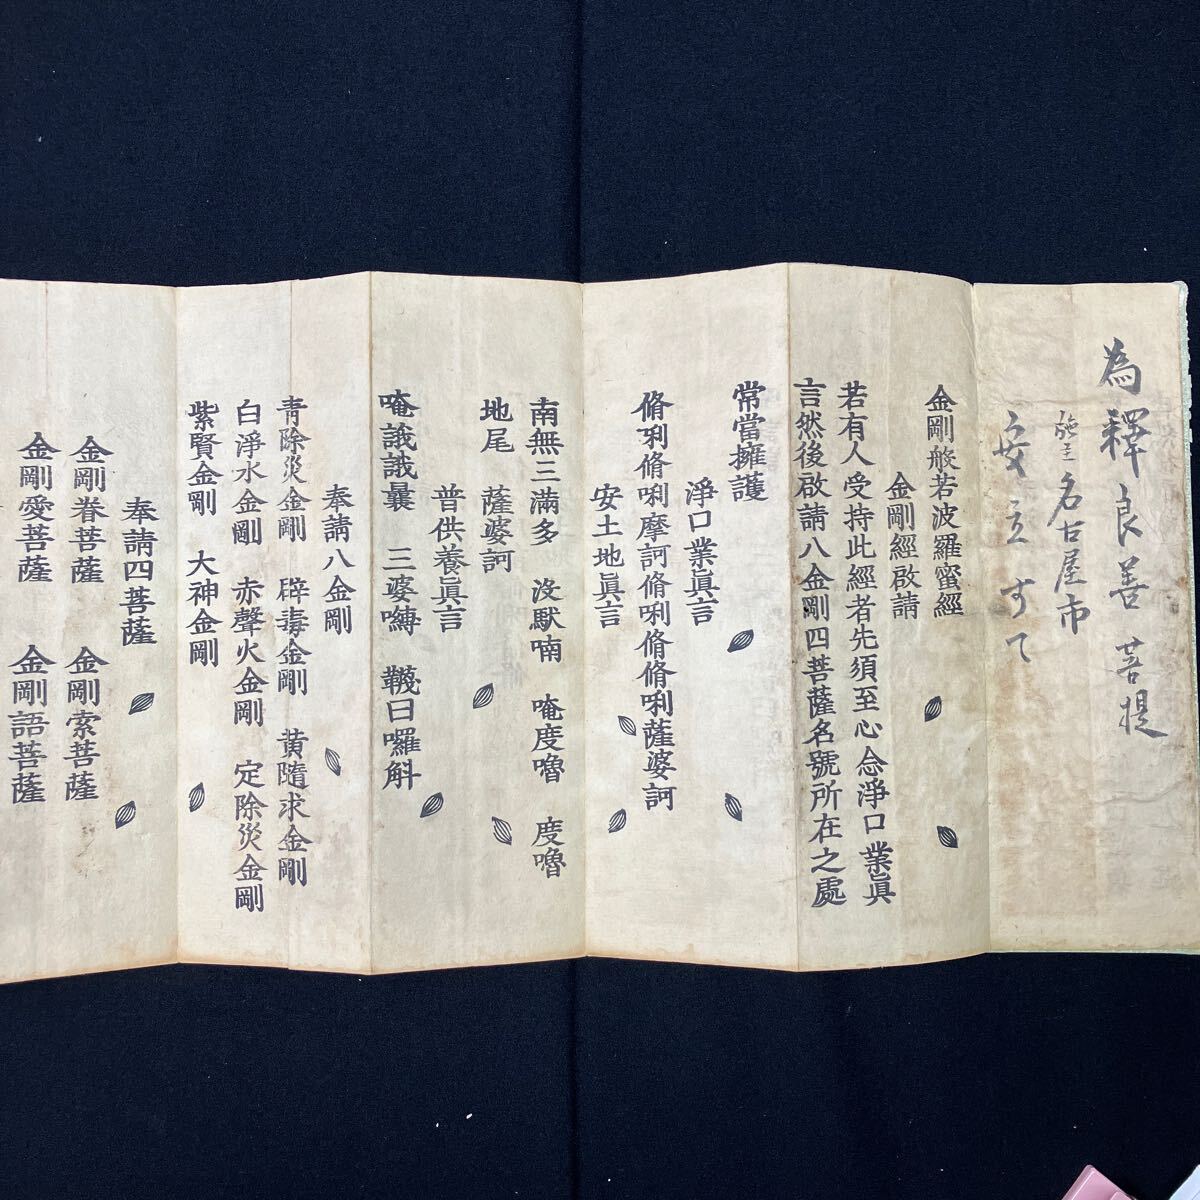 為釋良善菩提
施主名古屋市
安立すて
金剛般若波羅蜜經
金剛經啟請
若有人受持此經者先須至心念淨口業眞
言然後啟請八金剛四菩薩名號所在之處
常當擁護
淨口業眞言
脩唎脩唎摩訶脩唎脩脩唎薩婆訶
安土地眞言
南無三滿多 沒馱喃 唵度嚕 度嚕
地尾 薩婆訶
普供養眞言
唵誐誐曩 三婆嚩 韈日囉斛
奉請八金剛
靑除災金剛 辟毒金剛 黃隨求金剛
白淨水金剛 赤聲火金剛 定除災金剛
紫賢金剛 大神金剛
奉請四菩薩
金剛眷菩薩 金剛索菩薩
金剛愛菩薩 金剛語菩薩